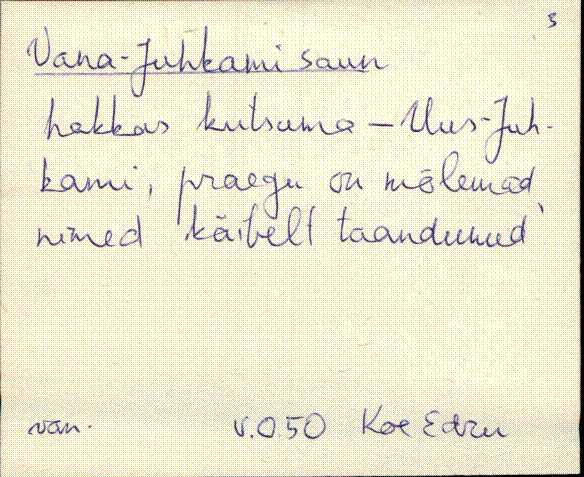 3
Vana-Juhkami saun
hakkas kutsuma – Uus-Juh-
kami, praegu on mõlemad
nimed käibelt taandunud
van. V.050 Koe Edru